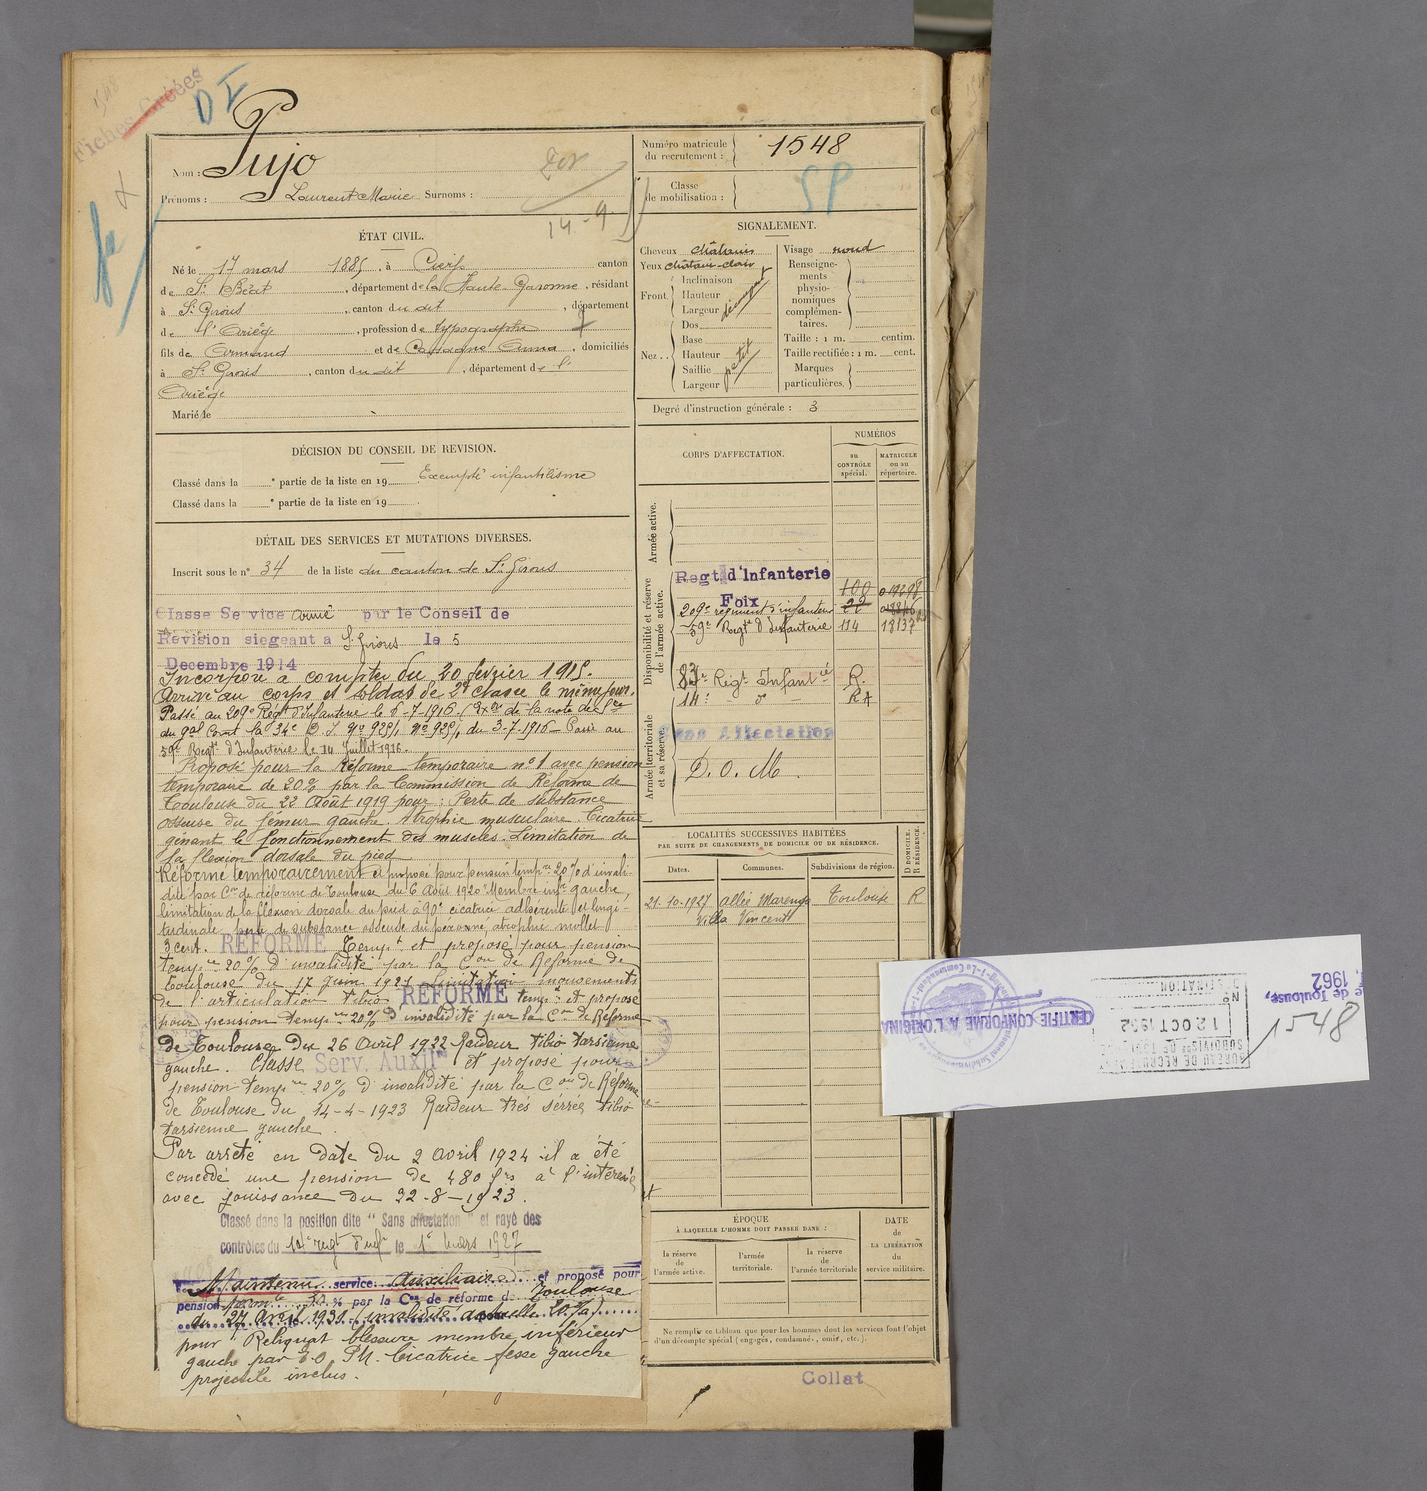 Fiches Créées
1548
D I
Nom : Pujo
Prénoms : Laurent Marie Surnoms :
14-9
ÉTAT CIVIL.
Né le 17 mars 1885, à Cierp canton
de St Béat, département de la Haute-Garonne, résidant
à St Girons, canton du dit, département
de l'Ariège, profession de typographe
fils de Armand et de Cassagne Anna, domiciliés
à St Girons, canton du dit, département de l'
Ariège
Marié le
DÉCISION DU CONSEIL DE REVISION.
Classé dans la e partie de la liste en 19 Exempté infantilisme
Classé dans la e partie de la liste en 19 .
DÉTAIL DES SERVICES ET MUTATIONS DIVERSES.
Inscrit sous le n° 34 de la liste du canton de St Girons
Classe Service armé par le Conseil de
Révision siegeant a St Girons le 5
Decembre 1914
Incorporé à compter du 20 février 1915.
Arrivé au corps et soldat de 2e classe le même jour.
Passé au 209e Régt d'Infanterie le 6-7-1916. (Exon de la note de Sce
du Gal Comt la 34e D.I. No 929/1 No 929/1 du 3-7-1916 - Passé au
59e Regt d'Infanterie le 14 Juillet 1916.
Proposé pour la Réforme temporaire n° 1 avec pension
temporaire de 20% par la Commission de Réforme de
Toulouse du 22 Août 1919 pour : Perte de substance
osseuse du fémur gauche. Atrophie musculaire. Cicatrice
gênant le fonctionnement des muscles. Limitation de
la flexion dorsale du pied
Réformé temporairement et proposé pour pension tempre 20% d'invali-
dité par Con de réforme de Toulouse du 6 Août 1920 Membre infr gauche,
limitation de la flexion dorsale du pied à 90° cicatrice adhérente et longi-
tudinale, perte de substance osseuse du péronné, atrophie mollet
3 cent. RÉFORMÉ Tempt et proposé pour pension
tempre 20% d'invalidité par la Con de Réforme de
Toulouse du 17 Juin 1921 Limitation mouvements
de l'articulation tibio RÉFORMÉ tempt et proposé
pour pension tempre 20% d'invalidité par la Con de Réforme
de Toulouse du 26 Avril 1922 Raideur tibio tarsienne
gauche. Classé Serv. Auxilre et proposé pour
pension tempre 20% d'invalidité par la Con de Réforme
de Toulouse du 14-4-1923 Raideur très serrée tibio
tarsienne gauche.
Par arrêté en date du 2 Avril 1924 il a été
concédé une pension de 480 frs à l'intéressé
avec jouissance du 22-8-1923.
Classé dans la position dite " Sans affectation " et rayé des
contrôles du 14e regt d'infie le 1e mars 1927
Maintenu service Auxiliaire et proposé pour
pension permte % par la Con de réforme de Toulouse
du 27 Avril 1931 (invalidité actuelle 20%) pour
pour Reliquat blessure membre inférieur
gauche par E.O. Ph. Cicatrice fesse gauche
projectile inclus.
Numéro matricule du recrutement : 1548
Classe de mobilisation :
SP
SIGNALEMENT.
Cheveux châtain
Yeux châtain-clair
Front. Inclinaison
Hauteur
Largeur
découvert
Nez.. Dos
Base
Hauteur
Saillie
Largeur
petit
Visage rond
Renseigne-
ments
physio-
nomiques
complémen-
taires.
Taille : 1 m. centim.
Taille rectifiée : 1 m. cent.
Marques
particulières.
Degré d'instruction générale : 3
CORPS D'AFFECTATION.
NUMÉROS
au CONTRÔLE spécial.
MATRICULE ou au répertoire.
Armée active.
Disponibilité et réserve de l'armée active.
Regt d'Infanterie
Foix
209e régiment d'infanterie
59e Regt d'Infanterie 114 18137
83e Régt Infantie R.
14e d° R
Armée territoriale et sa réserve.
Sans Affectation
D. O. M.
LOCALITÉS SUCCESSIVES HABITÉES
PAR SUITE DE CHANGEMENTS DE DOMICILE OU DE RÉSIDENCE.
Dates. Communes. Subdivisions de région. D DOMICILE. R RÉSIDENCE.
21-10-1927 allée Marengo Toulouse R
Villa Vincent
ÉPOQUE
À LAQUELLE L'HOMME DOIT PASSER DANS :
la réserve de l'armée active.
l'armée territoriale.
la réserve de l'armée territoriale
DATE
de
LA LIBÉRATION
du
service militaire.
Ne remplir ce tableau que pour les hommes dont les services font l'objet
d'un décompte spécial (engagés, condamnés, omis, etc.).
Collat
CERTIFIÉ CONFORME A L'ORIGINAL
de Toulouse,
1962
BUREAU DE RECRUTEMENT
SUBDIVISION DE TOULOUSE
12 OCT 1962
N°
1548